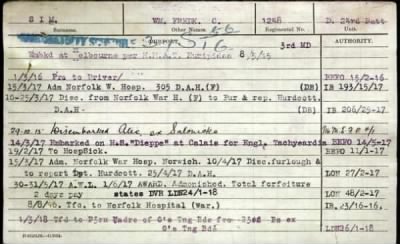 SIM. WM. FREDK. C. 1248 D. 23rd Batt
Surname. Other Names. Regimental No.
3rd MD
Embkd at Melbourne per H.M.A.T. Euripides 8/5/15
1/3/16 Pro to Driver/ BEFO 15/2-16
15/3/17 Adm Norfolk W. Hosp. 305 D.A.H.(F) (DB) IB 193/15/17
10-25/3/17 Disc. from Norfolk War H. (F) to Fur & rep. Hurdcott.
D.A.H- (DB) IB 206/25-17
Disembarked Alex, ex
14/3/17 Embarked on H.S."Dieppe" at Calais for Engl. Tachycardia BEFO 14/5-17
19/2/17 To HospSick. BEFO 11/1-17
15/3/17. Adm. Norfolk War Hosp. Norwich. 10/4/17 Disc.furlough &
to report Dpt. Hurdcott. 25/4/17 D.A.H. LON 27/2-17
30-31/5/17 A.W.L. 1/6/17 AWARD. Admonished. Total forfeiture
2 days pay states DVR LDN24/1-18 LON 48/2-17
8/8/16. Tfd to Norfolk Hospital (War.)
1/3/18 Tfd to Cadre of O's Tng Bde from ex
O's Tng Bde LDN26/1-18